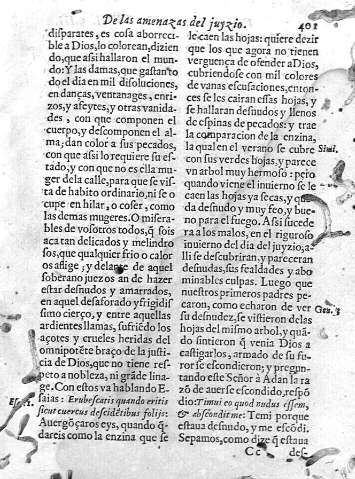 De las amenazas del juyzio. 401
disparates, es cosa aborreci
ble a Dios, lo colorean, dizien
do, que assi hallaron el mun-
do: Y las damas, que gastan to
do el dia en mil disoluciones,
en danças, ventanages, enri-
zos, y afeytes, y otras vanida
des, con que componen el
cuerpo, y descomponen el al-
ma, dan color a sus pecados,
con que assi lo requiere su es-
tado, y con que no es ella mu-
ger de la calle, para que se vis-
ta de habito ordinario, ni se o
cupe en hilar, o coser, como
las demas mugeres. O misera-
bles de vosotros todos, q̃ sois
aca tan delicados y melindro
sos, que qualquier frio o calor
os aflige, y delante de aquel
soberano juez os an de hazer
estar desnudos y amarrados,
en aquel desaforado y frigidis
simo cierço, y entre aquellas
ardientes llamas, sufriẽdo los
açotes y crueles heridas del
omnipotẽte braço de la justi-
cia de Dios, que no tiene res-
peto a nobleza, ni grãde lina-
ge. Con estos va hablando E-
saias: Erubescatis quando eritis
sicut cuercus descidẽtibus folijs:
Auergõçaros eys, quando q̃-
dareis como la enzina que se
le caen las hojas: quiere dezir
que los que agora no tienen
verguença de ofender a Dios,
cubriendose con mil colores
de vanas escusaciones, enton-
ces se les cairan essas hojas, y
se hallaran desnudos y llenos
de espinas de pecados: y trae
la comparacion de la enzina,
la qual en el verano se cubre
con sus verdes hojas, y parece
vn arbol muy hermoso: pero
quando viene el inuierno se le
caen las hojas ya secas, y que
da desnudo y muy feo, y bue-
no para el fuego. Assi sucede
ra a los malos, en el riguroso
inuierno del dia del juyzio, a-
lli se descubriran, y pareceran
desnudas, sus fealdades y abo
minables culpas. Luego que
nuestros primeros padres pe-
caron, como echaron de ver
su desnudez, se vistieron de las
hojas del mismo arbol, y quã-
do sintieron q̃ venia Dios a
castigarlos, armado de su fu-
ror se escondieron; y pregun-
tando este Señor à Adan la ra
zõ de auerse escondido, respõ
dio: Timui eo quod nudus essem,
& abscondi me: Temi porque
estaua desnudo, y me escõdi.
Sepamos, como dize q̃ estaua
Simi.
Gen. 3
Cc des-